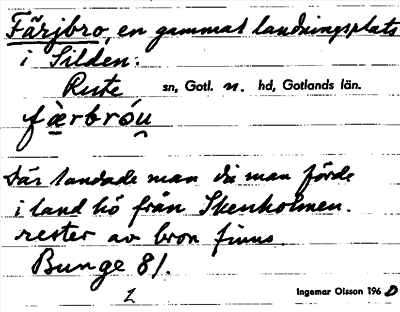 Färjbro, en gammal landningsplats
i Silden.
Rute sn, Gotl. n. hd, Gotlands län.
fæ̀rbróu̯
Där landade man då man förde
i land hö från Skenholmen.
rester av bron finns
Bunge 81.
2
Ingemar Olsson 196 D